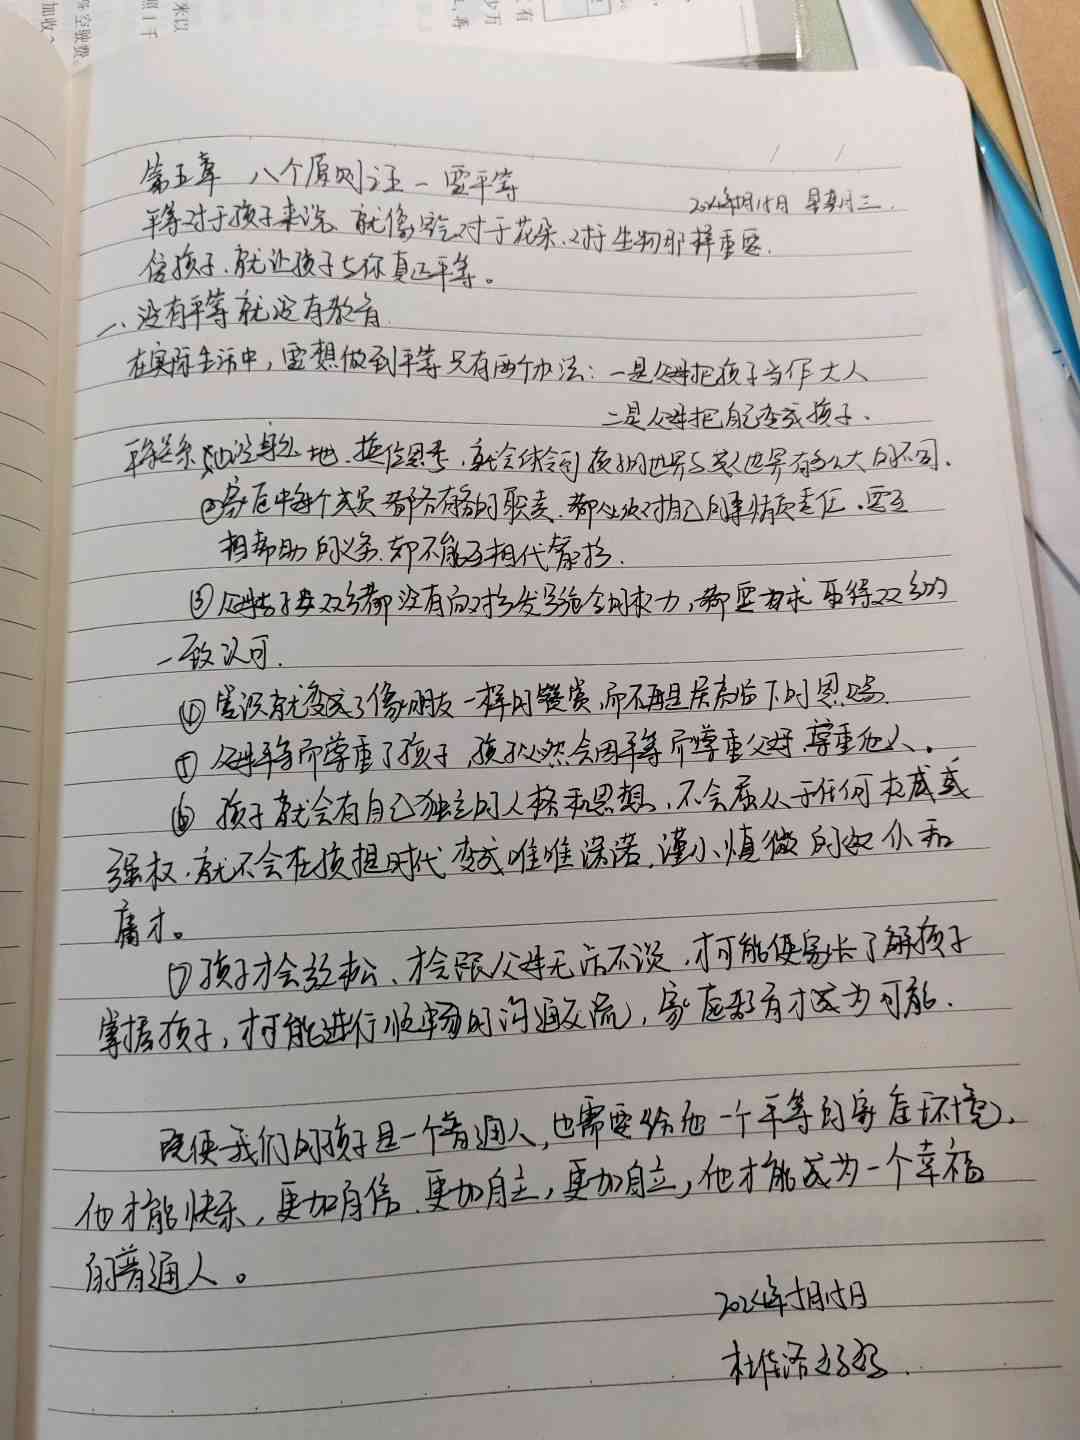 加收
空驶费
照1千
米以
第五章 八个原则之一 要平等
2024年5月15日 星期三.
平等对于孩子来说、就像空气对于花朵、对于生物那样重要.
信孩子、就让孩子与你真正平等。
一、没有平等就没有教育.
在实际生活中，要想做到平等只有两个办法：一是父母把孩子当作大人
二是父母把自己变成孩子.
平等关系 地、换位思考，就会体会到孩子的世界与成人世界有多么大的不同.
②家庭中每个成员都各有各的职责、都必须对自己的事情负责任.要互
相帮助的义务、却不能互相代替.
③父母与子女双方都没有向对方发号施令的权力，都要求取得双方的
一致认可.
④赏识就变成了像朋友一样的赞赏，而不再是居高临下的恩赐.
⑤父母平等而尊重了孩子，孩子必然会因平等而尊重父母、尊重他人。
⑥ 孩子就会有自己独立的人格和思想、不会屈从于任何权威或
强权、就不会在孩提时代变成唯唯诺诺，谨小慎微的奴仆和
庸才。
⑦孩子才会放松、才会跟父母无话不谈，才可能使家长了解孩子
掌握孩子，才可能进行顺畅的沟通交流，家庭教育才成为可能.
既使我们的孩子是一个普通人，也需要给他一个平等的家庭环境，
他才能快乐，更加自信、更加自主，更加自立，他才能成为一个幸福
的普通人。
2024年5月15日
杜佳洛妈妈.